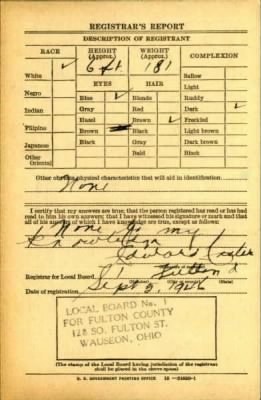 REGISTRAR'S REPORT
DESCRIPTION OF REGISTRANT
RACE
HEIGHT
(Approx.)
WEIGHT
(Approx.)
COMPLEXION
White ✓
6 ft.
181
Sallow
EYES
HAIR
Light
Negro
Blue ✓
Blonde
Ruddy
Indian
Gray
Red
Dark ✓
Hazel
Brown ✓
Freckled
Filipino
Brown
Black
Light brown
Japanese
Black
Gray
Dark brown
Other
Oriental
Bald
Black
Other obvious physical characteristics that will aid in identification
None
I certify that my answers are true; that the person registered has read or has had
read to him his own answers; that I have witnessed his signature or mark and that
all of his answers of which I have knowledge are true, except as follows:
None to my
Knowledge
Edward
Registrar for Local Board 1 Fulton
Date of registration Sept 2, 1942
LOCAL BOARD No. 1
FOR FULTON COUNTY
128 SO. FULTON ST.
WAUSEON, OHIO
(The stamp of the Local Board having jurisdiction of the registrant
shall be placed in the above space.)
U. S. GOVERNMENT PRINTING OFFICE